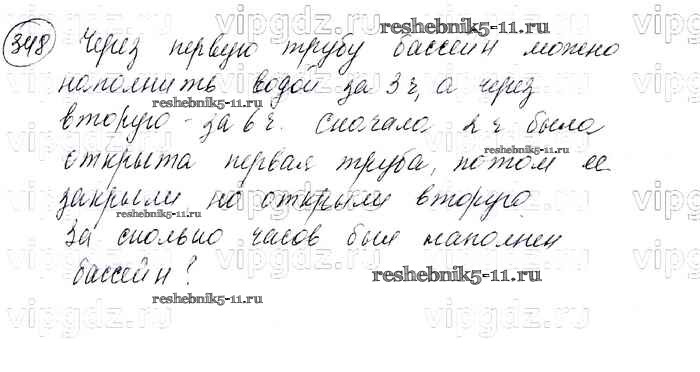 348 Через первую трубу бассейн можно
наполнить водой за 3 ч, а через
вторую - за 6 ч. Сначала 2 ч была
открыта первая труба, потом ее
закрыли, но открыли вторую.
За сколько часов был наполнен
бассейн?
reshebnik5-11.ru
reshebnik5-11.ru
reshebnik5-11.ru
reshebnik5-11.ru
reshebnik5-11.ru
reshebnik5-11.ru
vipgdz.ru
vipgdz.ru
vipgdz.ru
vipgdz.ru